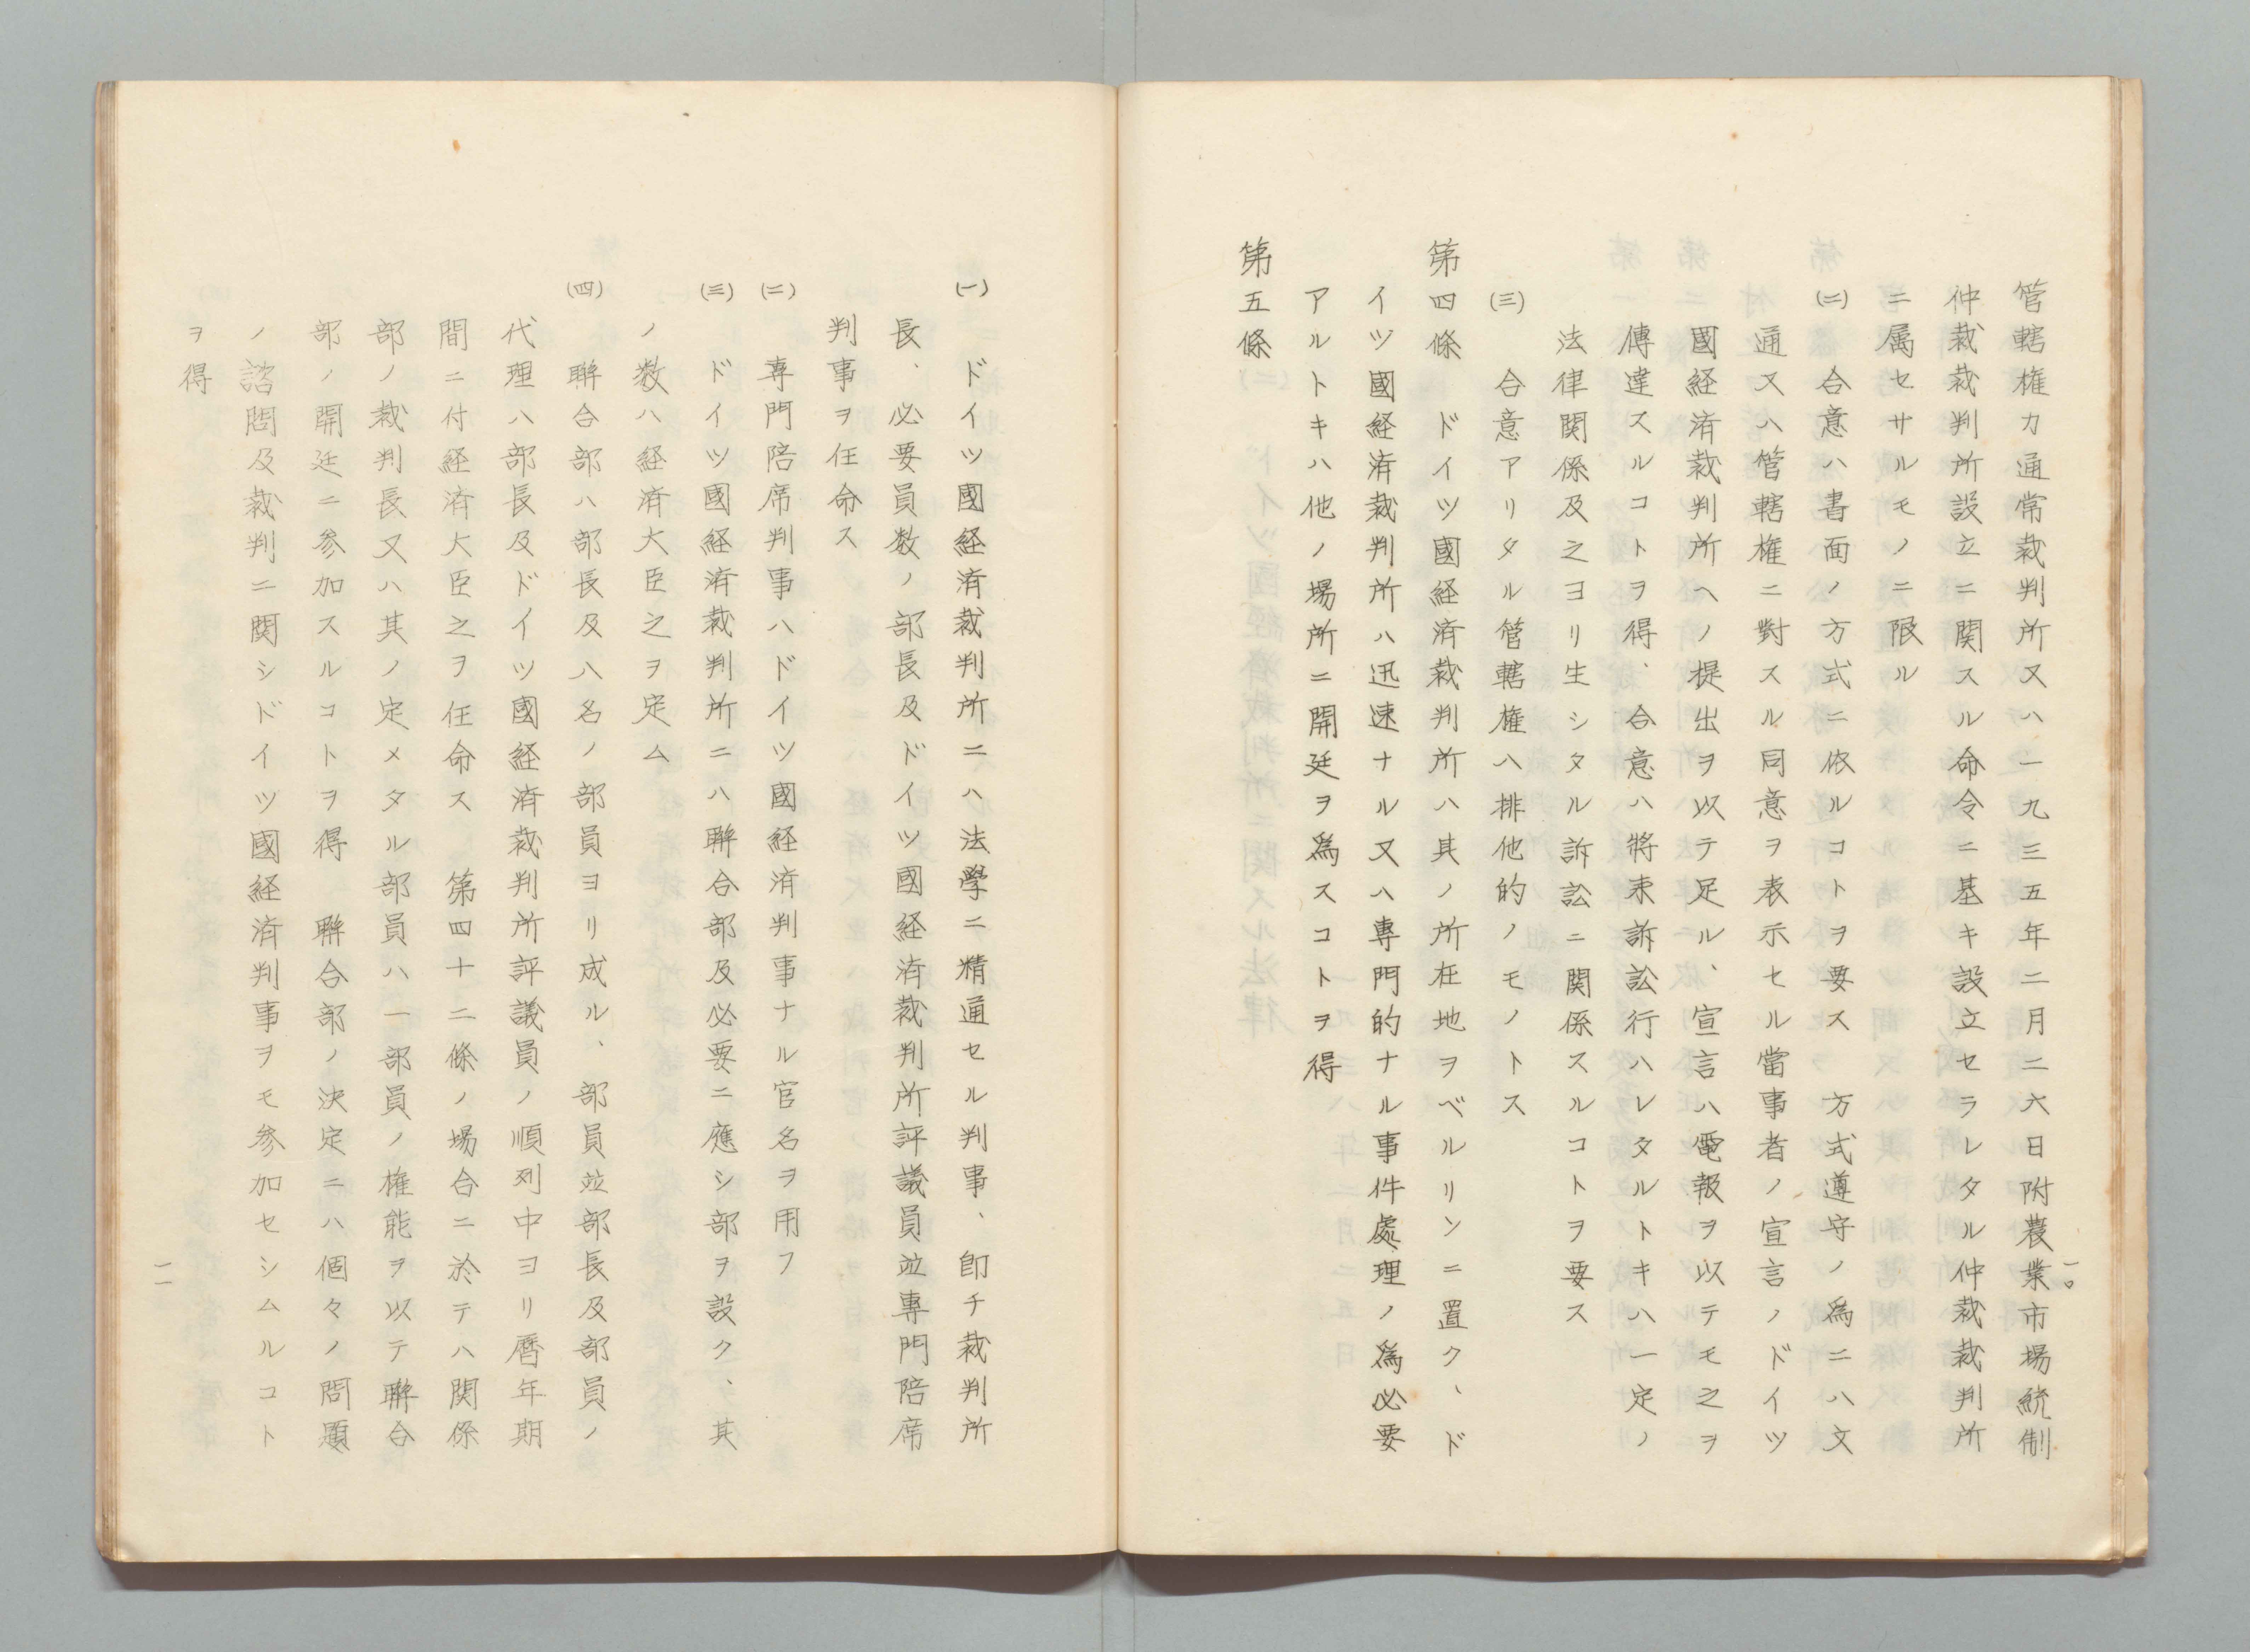 管轄権カ通常裁判所又ハ一九三五年二月二六日附農業市場統制
仲裁裁判所設立ニ関スル命令ニ基キ設立セラレタル仲裁裁判所
ニ属セサルモノニ限ル
(二) 合意ハ書面ノ方式ニ依ルコトヲ要ス 方式遵守ノ為ニハ文
通又ハ管轄権ニ對スル同意ヲ表示セル當事者ノ宣言ノドイツ
國経済裁判所ヘノ提出ヲ以テ足ル、宣言ハ電報ヲ以テモ之ヲ
傳達スルコトヲ得、合意ハ將来訴訟行ハレタルトキハ一定ノ
法律関係及之ヨリ生シタル訴訟ニ関係スルコトヲ要ス
(三) 合意アリタル管轄権ハ排他的ノモノトス
第四條 ドイツ國経済裁判所ハ其ノ所在地ヲベルリンニ置ク、ド
イツ國経済裁判所ハ迅速ナル又ハ専門的ナル事件處理ノ為必要
アルトキハ他ノ場所ニ開廷ヲ為スコトヲ得
第五條
一〇
(一) ドイツ國経済裁判所ニハ法學ニ精通セル判事、即チ裁判所
長、必要員数ノ部長及ドイツ國経済裁判所評議員竝專門陪席
判事ヲ任命ス
(二) 専門陪席判事ハドイツ國経済判事ナル官名ヲ用フ
(三) ドイツ國経済裁判所ニハ聯合部及必要ニ應シ部ヲ設ク、其
ノ数ハ経済大臣之ヲ定ム
(四) 聯合部ハ部長及八名ノ部員ヨリ成ル、部員竝部長及部員ノ
代理ハ部長及ドイツ國経済裁判所評議員ノ順列中ヨリ暦年期
間ニ付経済大臣之ヲ任命ス 第四十二條ノ場合ニ於テハ関係
部ノ裁判長又ハ其ノ定メタル部員ハ一部員ノ権能ヲ以テ聯合
部ノ開廷ニ参加スルコトヲ得 聯合部ノ決定ニハ個々ノ問題
ノ諮問及裁判ニ関シドイツ國経済判事ヲモ参加セシムルコト
ヲ得
一一